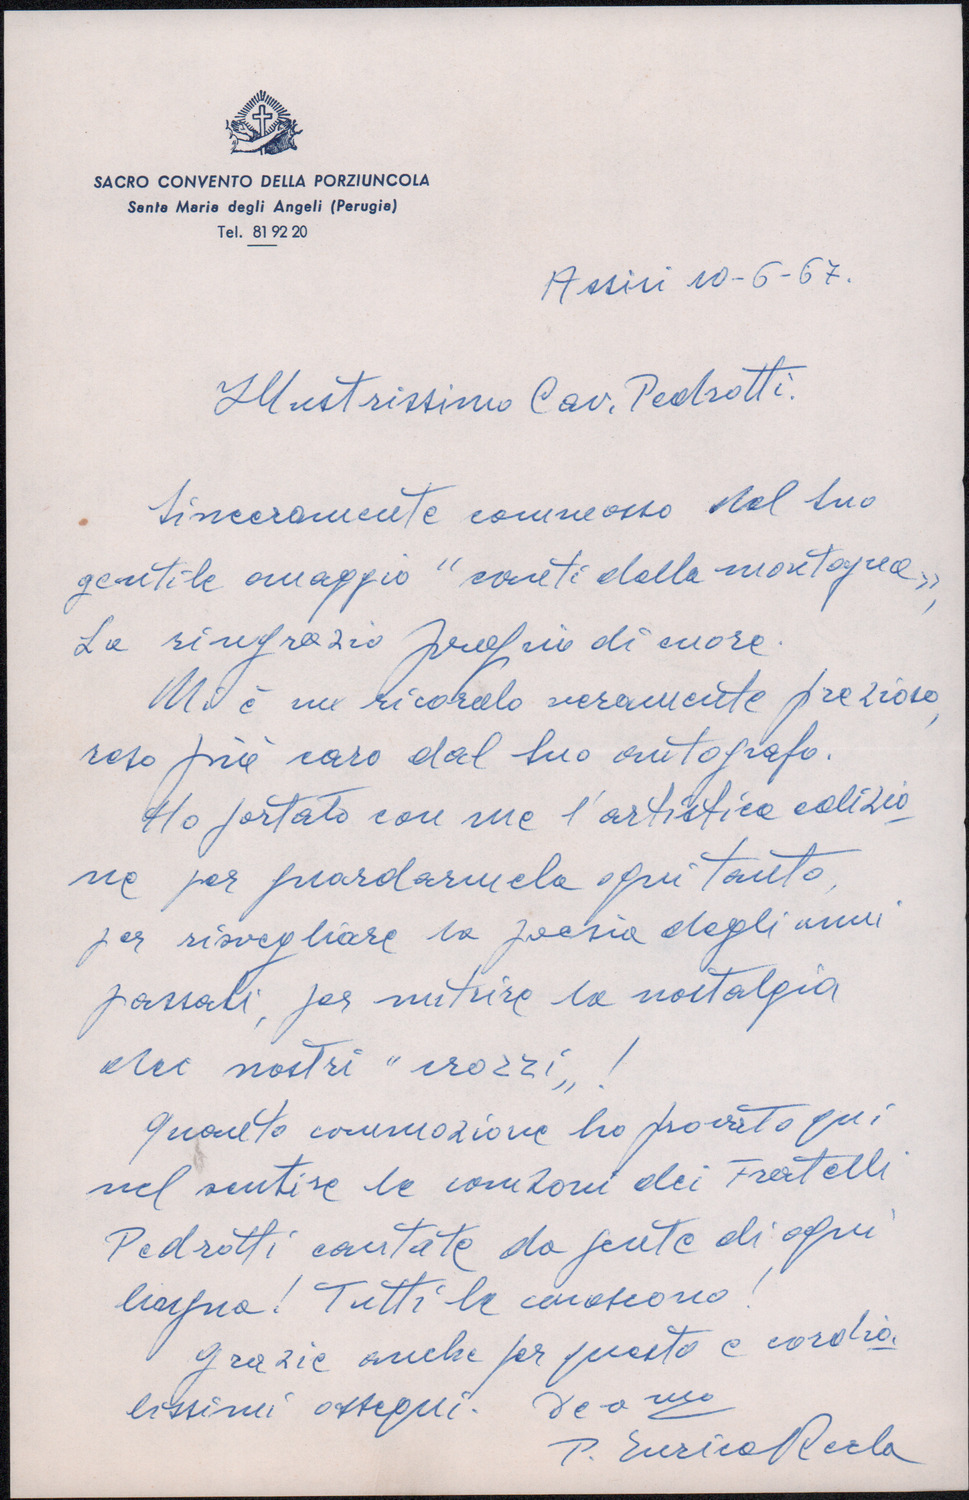 SACRO CONVENTO DELLA PORZIUNCOLA
Santa Maria degli Angeli (Perugia)
Tel. 81 92 20
Assisi 10-6-67.
Illustrissimo Cav. Pedrotti.
Sinceramente commosso dal Suo
gentile omaggio "canti della montagna",
La ringrazio proprio di cuore.
Mi è un ricordo veramente prezioso,
reso più caro dal Suo autografo.
Ho portato con me l'artistica edizio-
ne per guardarmela ogni tanto,
per risvegliare la poesia degli anni
passati, per nutrire la nostalgia
dei nostri "crozzi„!
Quanta commozione ho provato qui
nel sentire le canzoni dei Fratelli
Pedrotti cantate da gente di ogni
lingua! Tutti le conoscono!
Grazie anche per questo e cordia-
lissimi ossequi. Dev.mo
P. Enrico